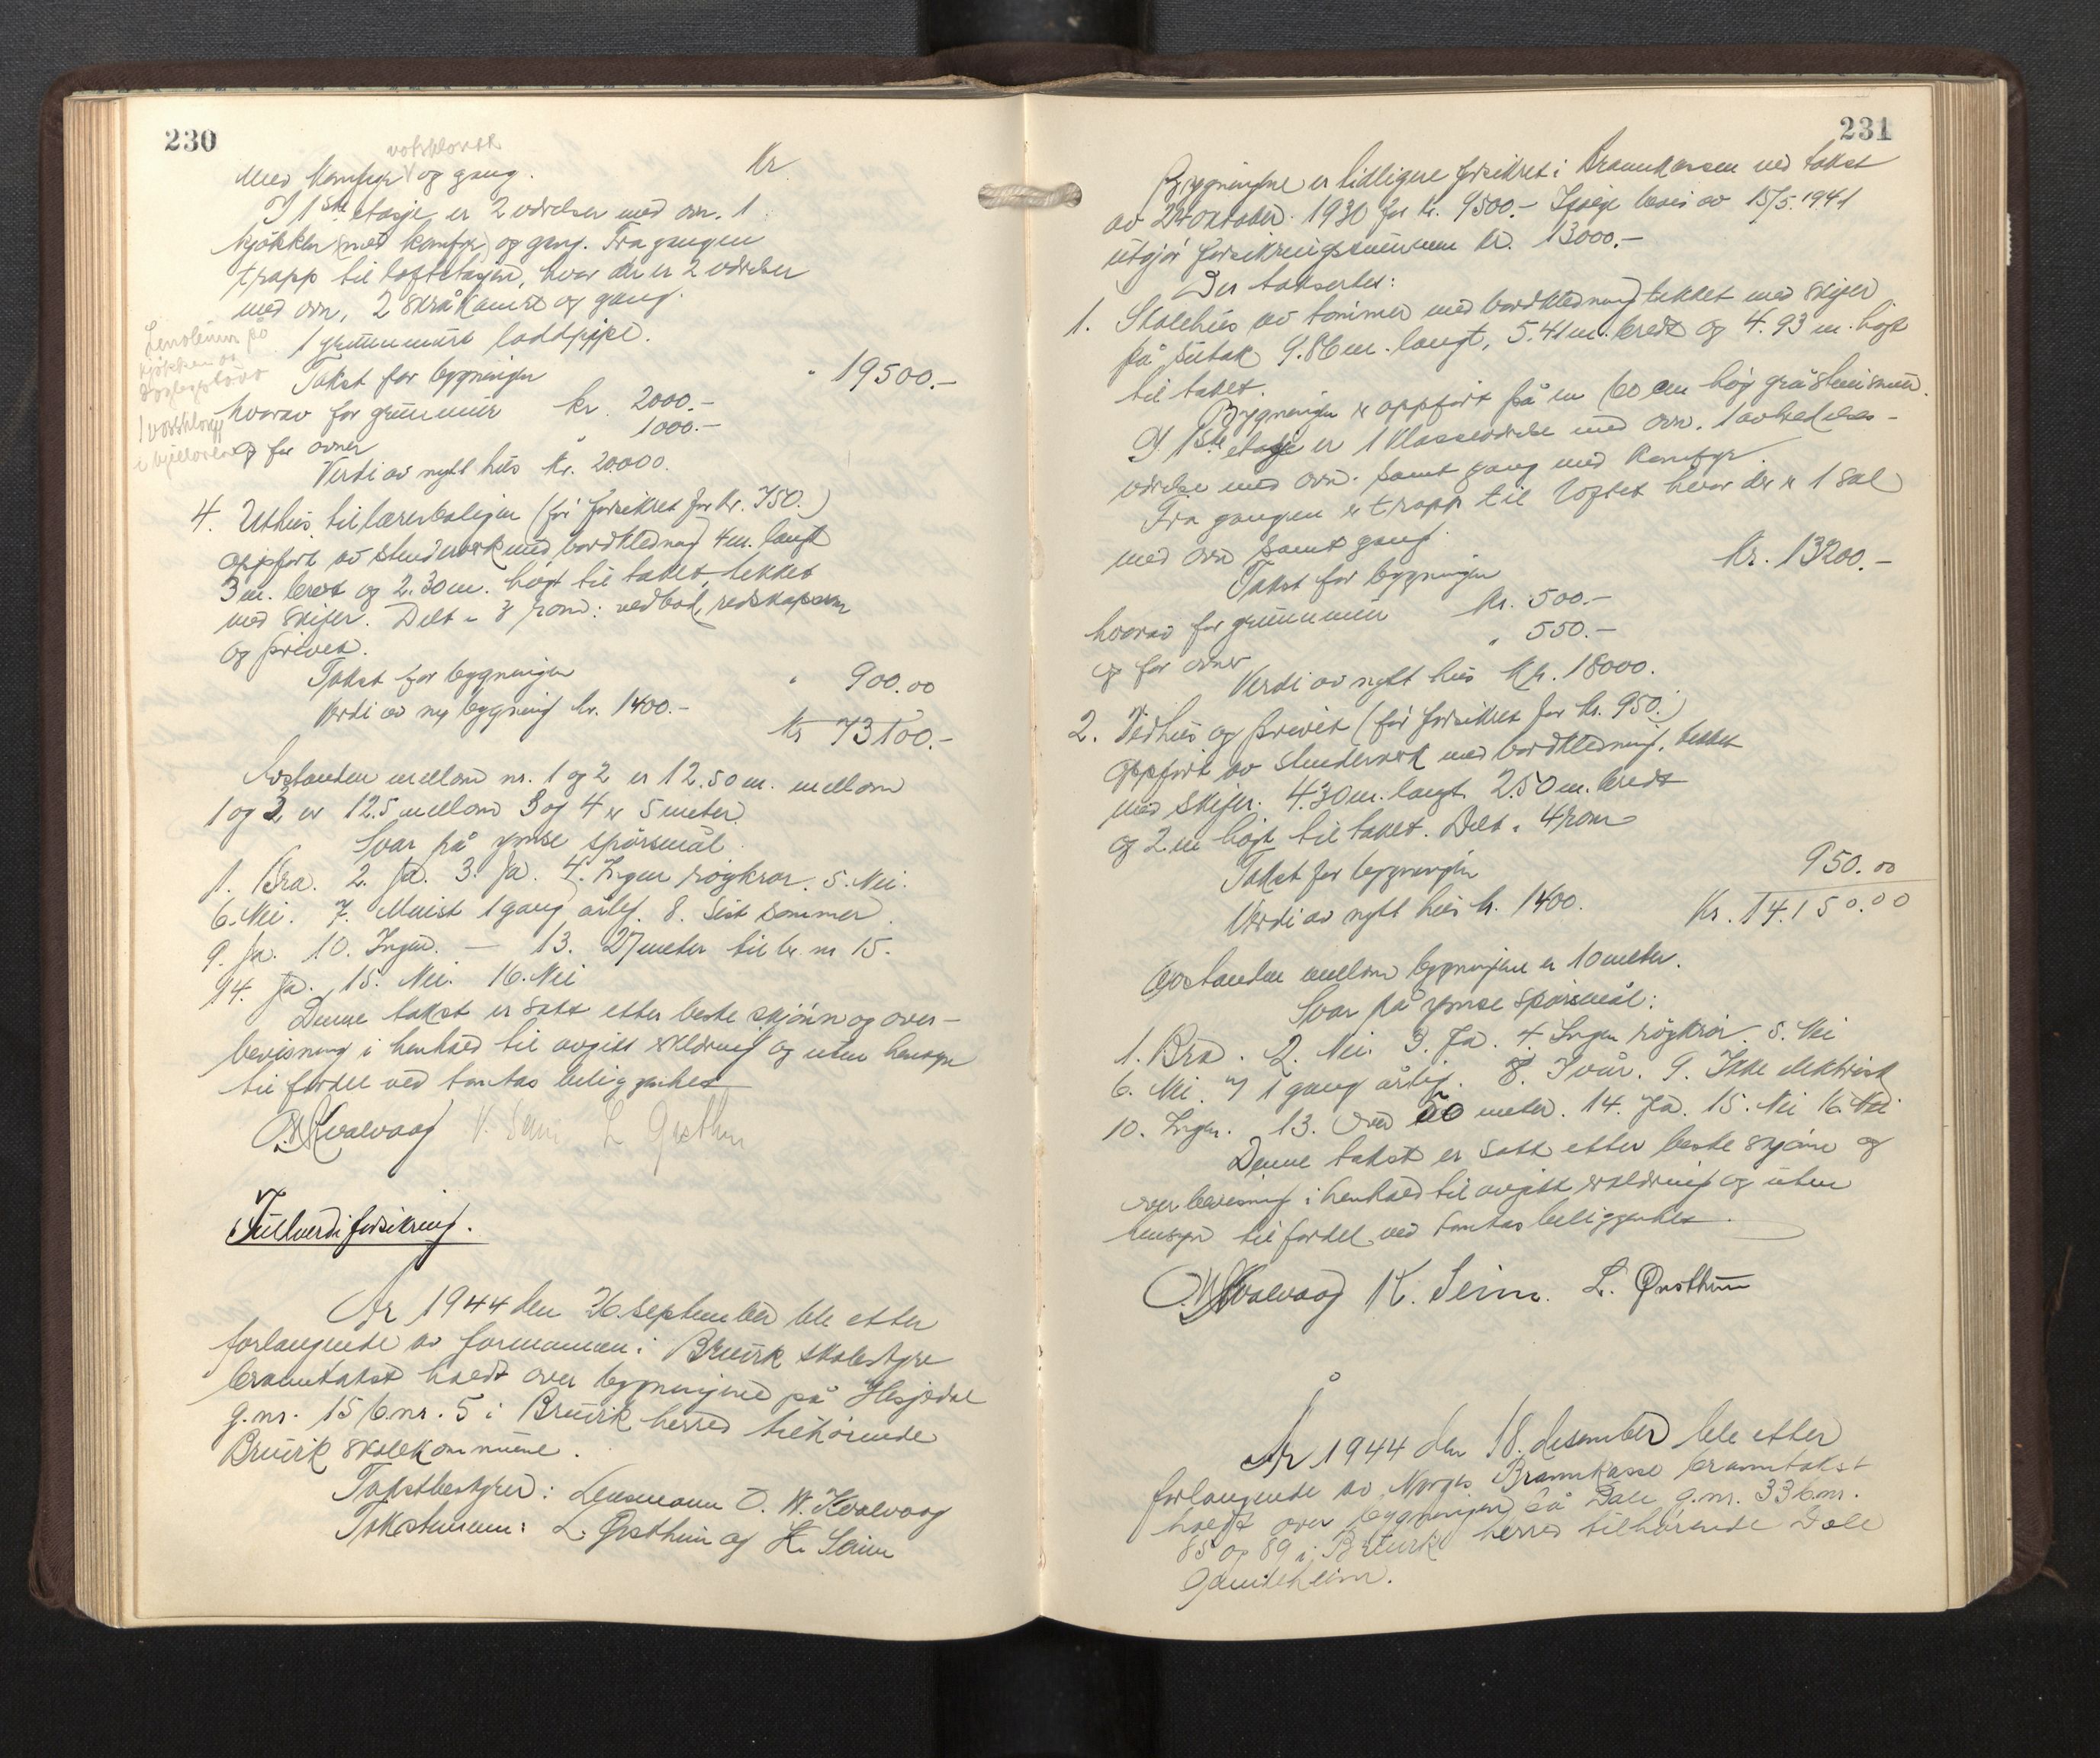 230
vaskeklosett
med komfyr og gang. Kr.
I 1ste etasje er 2 værelser med ovn. 1
kjøkken med komfyr og gang. Fra gangen
trapp til loftetasjen, hvor der er 2 værelser
med ovn, 2 skråkamre og gang.
1 gjennemmurt loddpipe.
Linoleum på
kjøkken og
Takst for bygningen " 19500.-
hvorav for grunnmur kr. 2000.-
og for ovner " 1000.-
Verdi av nytt hus kr. 20000.
4. Uthus til lærerboligen (før forsikret for kr. 750.)
oppført av stenderverk med bordkledning 4 m. langt
3 m. bredt og 2.30 m. høgt til taket, tekket
med skifer. Delt i 3 rom: vedbod, redskapsrom
og privet.
Takst for bygningen " 900.00
Verdi av ny bygning kr. 1400.-
Kr 73100.-
Avstanden mellom nr. 1 og 2 er 12.50 m. mellom
1 og 3 er 12.5 mellom 3 og 4 er 5 meter.
Svar på ymse spørsmål.
1. Bra. 2. Ja. 3. Ja. 4. Ingen røykrør. 5. Nei.
6. Nei. 7. Minst 1 gang årlig. 8. Sist sommer.
9. Ja. 10. Ingen. — 13. 27 meter til br. nr 15.
14. Ja. 15. Nei. 16. Nei
Denne takst er satt etter beste skjønn og over-
bevisning i henhold til avgitt erklæring og uten hensyn
til fordel ved tomtas beliggenhet
O.W. Kvalvaag K. Seim L. Grsthun
Fullverdiforsikring.
År 1944 den 26. september ble etter
forlangende av formannen i Bruvik skolestyre
branntakst holdt over bygningene på Hesjedal
g.nr. 15 b.nr. 5 i Bruvik herred tilhørende
Bruvik skolekommune.
Takstbestyrer: Lensmann O. W. Kvalvaag
Takstmenn: L. Grsthun og K. Seim
231
Bygningene er tidligere forsikret i Brannkassen ved takst
av 24 oktober 1930 for kr. 9500.- Ifølge bevis av 15/5. 1941
utgjør forsikringssummen kr. 13000.-
Der takseres:
1. Skolehus av tømmer med bordkledning tekket med skifer
på sutak 9.86 m. langt, 5.41 m. bredt og 4.93 m. høgt
til taket.
Bygningen er oppført på en 60 cm høg gråsteinsmur.
I 1ste etasje er 1 klasseværelse med ovn. 1 avkledes-
værelse med ovn. samt gang med komfyr.
Fra gangen er trapp til loftet hvor der er 1 sal
med ovn samt gang.
Takst for bygningen Kr. 13200.-
hvorav for grunnmur kr. 500.-
og for ovner " 550.-
Verdi av nytt hus kr. 18000.
2. Vedhus og privet (før forsikret for kr. 950.)
oppført av stenderverk med bordkledning, tekket
med skifer. 4.30 m. langt. 2.50 m. bredt
og 2 m høgt til taket. Delt i 4 rom
Takst for bygningen 950.00
Verdi av nytt hus kr. 1400. Kr. 14.150.00
Avstanden mellom bygningene er 10 meter.
Svar på ymse spørsmål:
1. Bra. 2. Nei. 3. Ja. 4. Ingen røykrør. 5. Nei
6. Nei. 7 1 gang årlig. 8. I vår. 9. Ikke elektrisk
10. Ingen. 13. Over 20 meter. 14. Ja. 15. Nei 16. Nei
Denne takst er satt etter beste skjønn og
overbevisning i henhold til avgitt erklæring og uten
hensyn til fordel ved tomtas beliggenhet.
O.W. Kvalvaag K. Seim. L. Grsthun
År 1944 den 18. desember ble etter
forlangende av Norges Brannkasse branntakst
holdt over bygningen på Dale g.nr. 33 b.nr.
85 og 89 i Bruvik herred tilhørende Dale
Gamleheim.